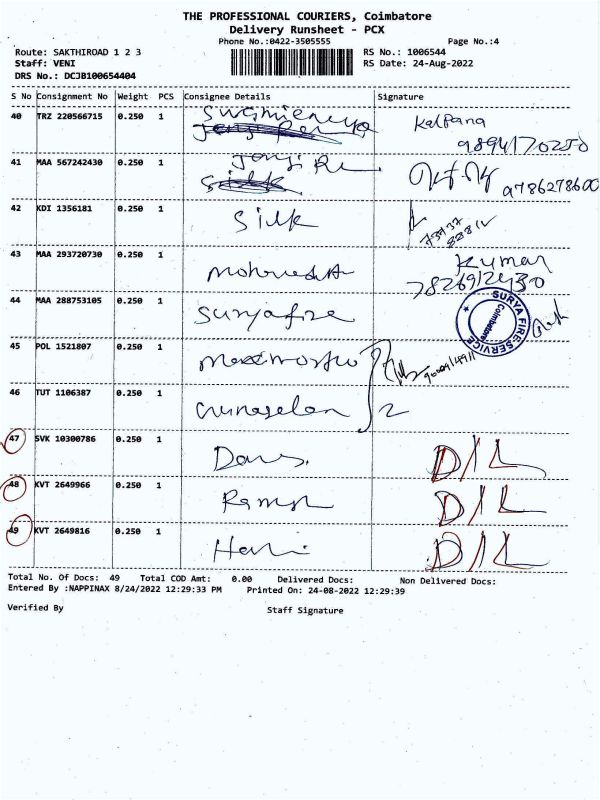 THE PROFESSIONAL COURIERS, Coimbatore
Delivery Runsheet - PCX
Phone No.:0422-3505555 Page No.:4
Route: SAKTHIROAD 1 2 3 RS No.: 1006544
Staff: VENI RS Date: 24-Aug-2022
DRS No.: DCJB100654404
S No Consignment No Weight PCS Consignee Details Signature
40 TRZ 220566715 0.250 1 Kalpana
41 MAA 567242430 0.250 1 9786278600
42 KDI 1356181 0.250 1 Silk
43 MAA 293720730 0.250 1 Kumar
7826912430
44 MAA 288753105 0.250 1 Suryafire SURYA FIRE SERVICE Coimbatore
45 POL 1521807 0.250 1
46 TUT 1106387 0.250 1 2
47 SVK 10300786 0.250 1 D/L
48 KVT 2649966 0.250 1 Ramesh D/L
49 KVT 2649816 0.250 1 Hari D/L
Total No. Of Docs: 49 Total COD Amt: 0.00 Delivered Docs: Non Delivered Docs:
Entered By :NAPPINAX 8/24/2022 12:29:33 PM Printed On: 24-08-2022 12:29:39
Verified By Staff Signature